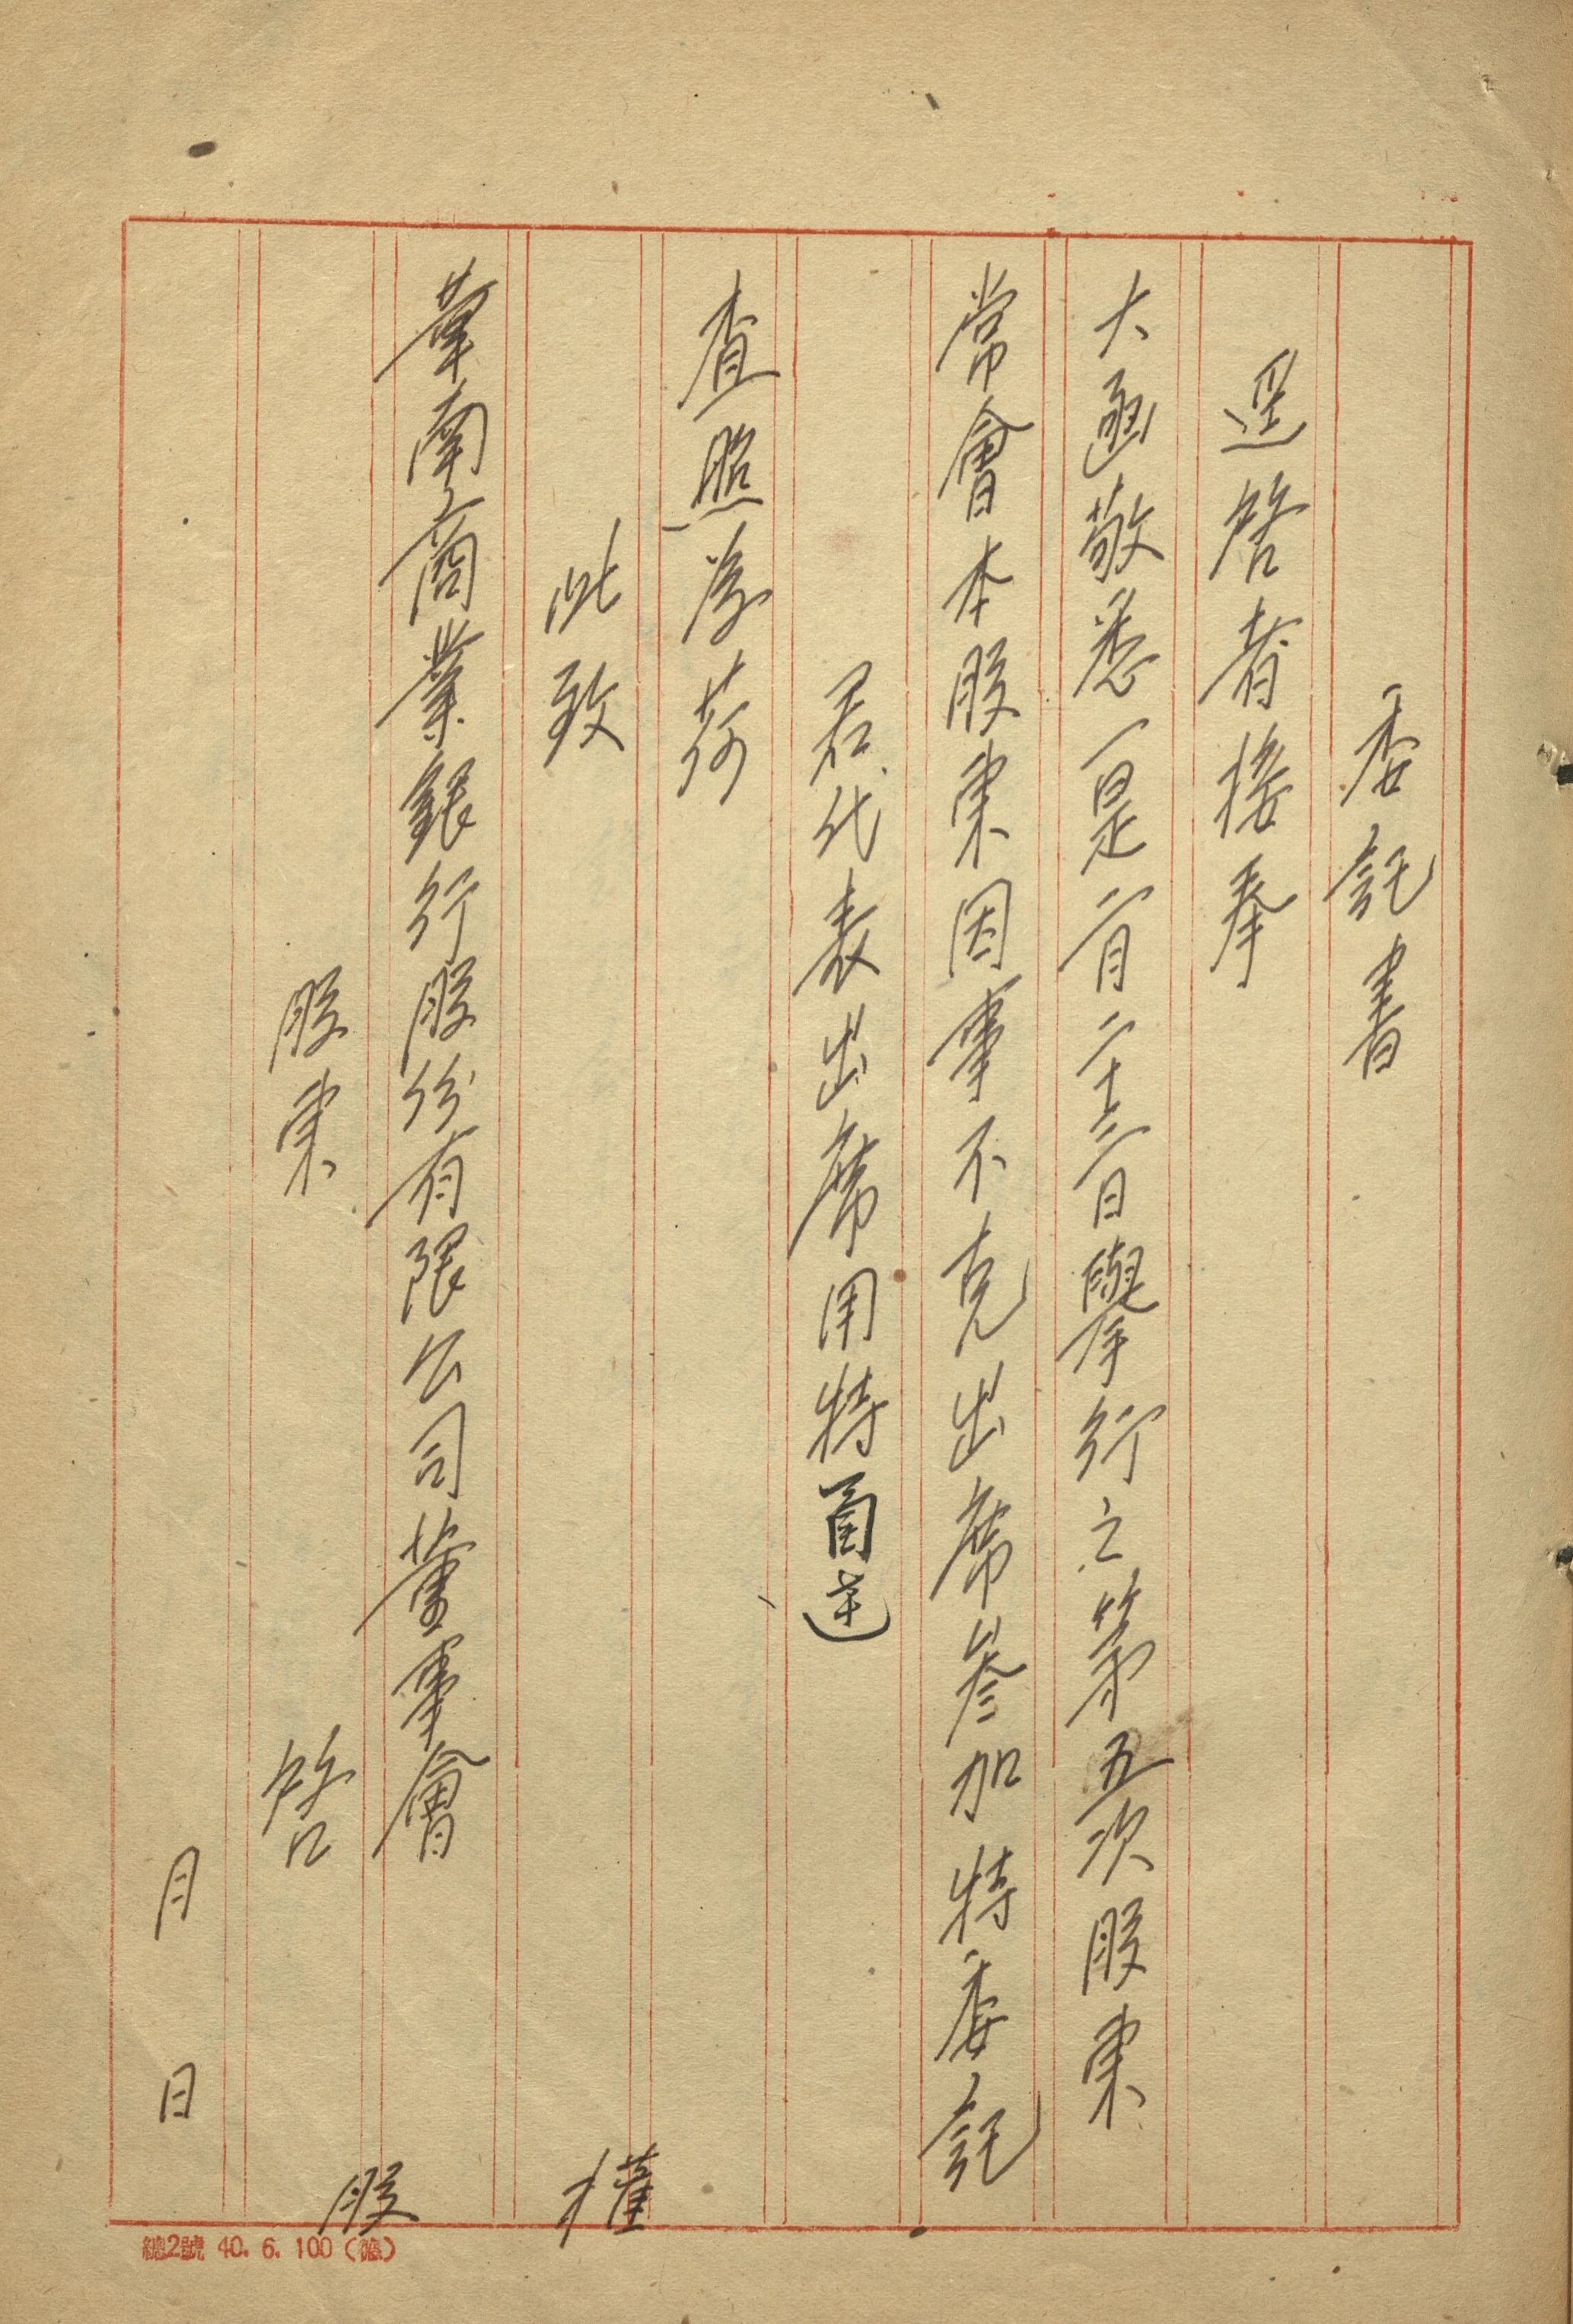 委託書
逕啓者接奉
大函敬悉一是二月二十三日舉行之第五次股東
常會本股東因事不克出席參加特委託
君代表出席用特函達
查照為荷
此致
華南商業銀行股份有限公司董事會
股東　　啓
月　日
權
股
總2號 40. 6. 100 (德)